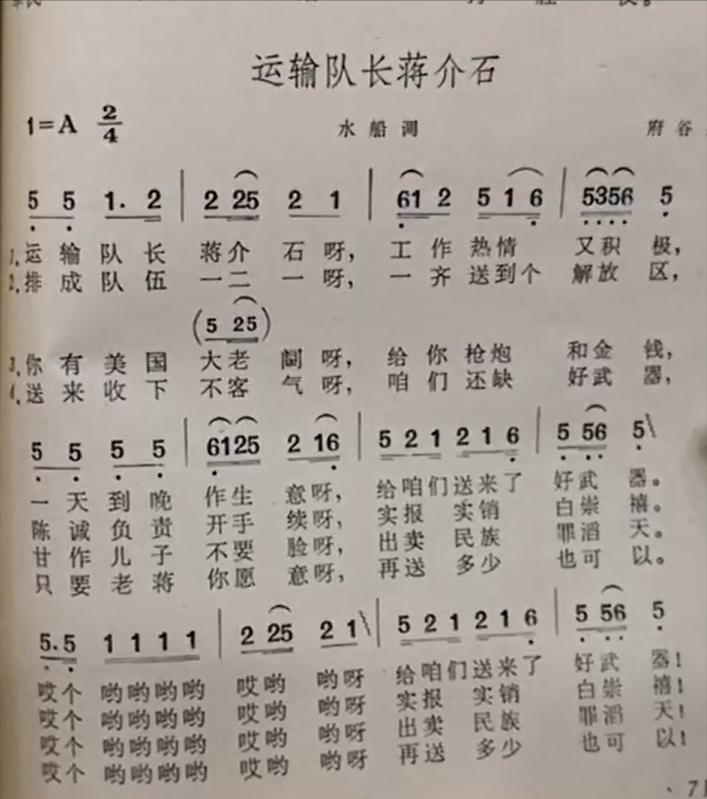 运输队长蒋介石
1=A 2/4 水船调 府谷
5 5 1. 2 | 2 25 2 1 | 61 2 5 16 | 5356 5
1.运输队长 蒋介石呀, 工作热情 又积极,
2.排成队伍 一二一呀, 一齐送到个 解放区,
(5 25)
3.你有美国 大老阔呀, 给你枪炮 和金钱,
4.送来收下 不客气呀, 咱们还缺 好武器,
5 5 5 5 | 6125 2 16 | 5 2 1 2 1 6 | 5 56 5
一天到晚 作生意呀, 给咱们送来了 好武器。
陈诚负责 开手续呀, 实报实销 白崇禧。
甘作儿子 不要脸呀, 出卖民族 罪滔天。
只要老蒋 你愿意呀, 再送多少 也可以。
5.5 1 1 1 1 | 2 25 2 1 | 5 2 1 2 1 6 | 5 56 5
哎个 哟哟哟哟 哎哟 哟呀 给咱们送来了 好武器!
哎个 哟哟哟哟 哎哟 哟呀 实报实销 白崇禧!
哎个 哟哟哟哟 哎哟 哟呀 出卖民族 罪滔天!
哎个 哟哟哟哟 哎哟 哟呀 再送多少 也可以!